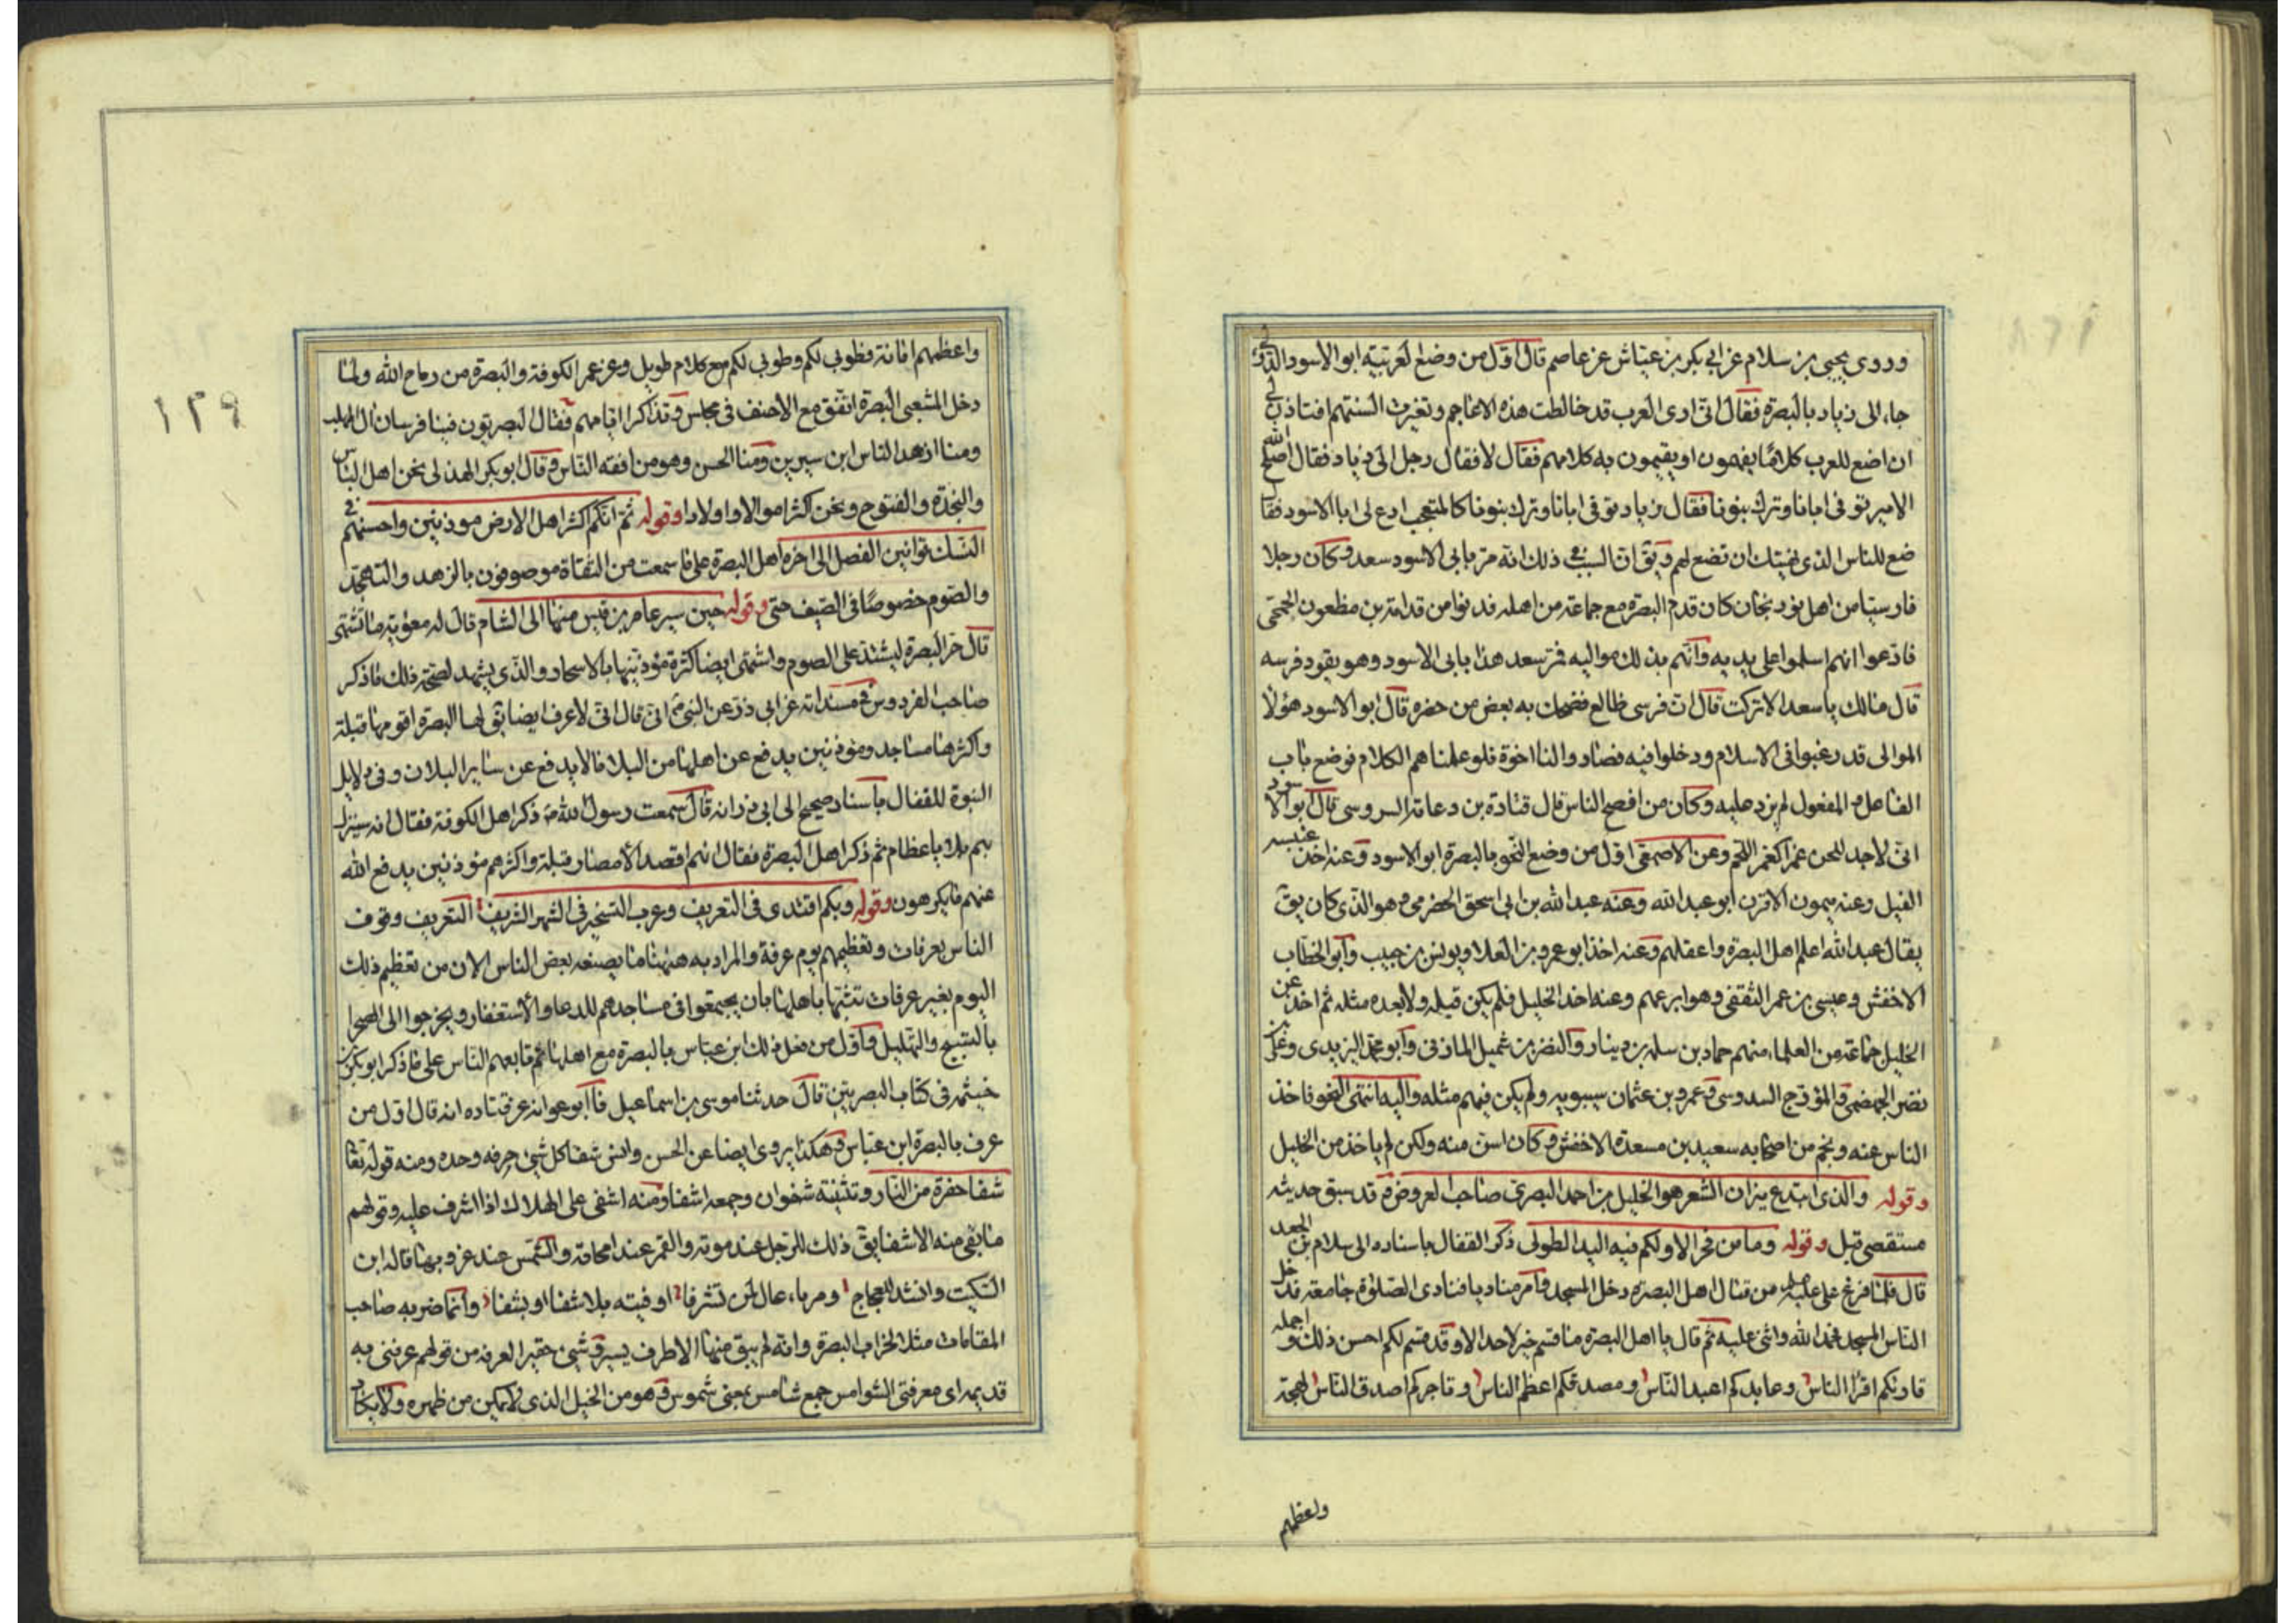 وروى يحيى بن سلام عن ابي بكر بن عياش عن عاصم قال اول من وضع العربية ابو الاسود الدؤلى
جاء الى زياد بالبصرة فقال انى ارى العرب قد خالطت هذه الاعاجم وتغيرت السنتهم افتاذن لى
ان اضع للعرب كلاما يفهمون او يقيمون به كلامهم فقال لا فقال رجل الى زياد فقال اصلح الله
الامير توفى ابانا وترك بنونا فقال زياد توفى ابانا وترك بنونا كالمتعجب ادع لى ابا الاسود فقال
ضع للناس الذى نهيتك ان تضع لهم ويق ان السبب فى ذلك انه مر بابى الاسود سعد وكان رجلا
فارسيا من اهل كان قدم البصره مع جماعة من اهله فدنوا من قدامة بن مظعون الجمحى
فادعوا انهم اسلموا على يديه وانهم بذلك مواليه فمر سعد هذا بابى الاسود وهو يقود فرسه
قال مالك يا سعد الا تركب قال ان فرسى ظالع فضحك به بعض من حضره قال ابو الاسود هؤلا
الموالى قد رغبوا فى الاسلام ودخلوا فيه فصاروا لنا اخوة فلو علمناهم الكلام فوضع باب
الفاعل والمفعول لم يزد عليه وكان من افصح الناس قال قتادة بن دعامة السدوسى قال ابو الاسود
انى لاجد للحن غمزا كغمز اللحم وعن الاصمعى اول من وضع النحو بالبصرة ابو الاسود وعنه اخذ عنبسه
الفيل وعنه ميمون الاقرن ابو عبد الله وعنه عبد الله بن ابى اسحق الحضرمى وهو الذى كان يق
يقال عبد الله اعلم اهل البصرة واعقلهم وعنه اخذ ابو عمرو بن العلا ويونس بن حبيب وابو الخطاب
الاخفش وعيسى بن عمر الثقفى وهو ابرعهم وعنه اخذ الخليل فلم يكن قبله ولا بعده مثله ثم اخذ عن
الخليل جماعة من العلماء منهم حماد بن سلمه بن دينار والنضر بن شميل المازنى وابو محمد اليزيدى وعلى بن
نصر الجهضمى والمؤرج السدوسى وعمرو بن عثمان سيبويه ولم يكن فيهم مثله واليه انتهى النحو فاخذ
الناس عنه ونجم من اصحابه سعيد بن مسعدة الاخفش وكان اسن منه ولكن لم ياخذ من الخليل
وقوله والذى ابتدع ميزان الشعر هو الخليل بن احمد البصرى صاحب العروض قد سبق حديثه
مستقصى قبل وقوله وما من فخر الا ولكم فيه اليد الطولى ذكر القفال باسناده الى سلام بن الجعد
قال فلما فرغ على عليه من قتال اهل البصره دخل المسجد وامر مناديا فنادى الصلوة جامعة فدخل
الناس المسجد فحمد الله واثنى عليه ثم قال يا اهل البصره ما قسم خير لاحد الا وقد قسم لكم احسن ذلك واجمله
قارئكم اقرأ الناس وعابدكم اعبد الناس ومصدقكم اعظم الناس وتاجركم اصدق الناس لهجة
واعظمهم
١٢٩
واعظمهم امانة فطوبى لكم وطوبى لكم مع كلام طويل وعن عمر الكوفة والبصرة من رماح الله ولما
دخل الشعبى البصرة اتفق مع الاحنف فى مجلس وتذاكرا ايامهم فقال البصريون فينا فرسان ال المهلب
ومنا ازهد الناس ابن سيرين ومنا الحسن وهو من افقه الناس وقال ابو بكر الهذلى نحن اهل الباس
والنجدة والفتوح ونحن اكثر اموالا واولادا وقوله ثم انكم اكثر اهل الارض موذنين واحسنهم فى
النسك قوانين الفصل الى اخره اهل البصرة على ما سمعت من الثقاة موصوفون بالزهد والتهجد
والصوم خصوصا فى الصيف حتى وقوله حين سير عامر بن قيس منها الى الشام قال له معوية ما تشتهى
قال حر البصرة ليشتد على الصوم واشتهى ايضا كثرة مؤذنيها بالاسحار والذى يشهد لصحة ذلك ما ذكر
صاحب الفردوس فى مسنداته عن ابى ذر عن النبى انى قال انى لاعرف ارضا يق لها البصرة اقومها قبلة
واكثرها مساجد ومؤذنين يدفع عن اهلها من البلاء ما لا يدفع عن ساير البلاد وفى دلايل
النبوة للقفال باسناد صحيح الى ابى ذر انه قال سمعت رسول الله ذكر اهل الكوفة فقال انه سينزل
بهم بلايا عظام ثم ذكر اهل البصرة فقال انهم اقصد الامصار قبلة واكثرهم مؤذنين يدفع الله
عنهم ما يكرهون وقوله وبكم اقتدى فى التعريف وعرف التسحير فى الشهر الشريف التعريف وقوف
الناس بعرفات وتعظيمهم يوم عرفة والمراد به هنهنا ما يصنعه بعض الناس الان من تعظيم ذلك
اليوم بغير عرفات تشبها باهلها بان يجتمعوا فى مساجدهم للدعاء والاستغفار ويخرجوا الى الصحرا
بالتسبيح والتهليل واول من فعل ذلك ابن عباس بالبصرة مع اهلها ثم تابعهم الناس على ما ذكر ابو بكر بن
خيثمه فى كتاب البصريين قال حدثنا موسى بن اسماعيل فا ابو عوانه عن قتاده انه قال اول من
عرف بالبصرة ابن عباس وهكذا يروى ايضا عن الحسن وانس شفا كل شئ حرفه وحده ومنه قوله تعا
شفا حفرة من النار وتثنيته شفوان وجمعه اشفا ومنه اشفى على الهلاك اذا اشرف عليه وقولهم
ما بقى منه الا شفا يق ذلك للرجل عند موته والقمر عند امحاقه والشمس عند غروبها قاله ابن
السكيت وانشد للعجاج ومرباء عال لمن تشرفا اوفيته بلا شفا او بشفا وانما ضربه صاحب
المقامات مثلا لخراب البصرة وانه لم يبق منها الا طرف يسير وشئ حقير العرفه من قولهم عرفنى به
قديمه اى معرفتى الشوامس جمع شامس بمعنى شموس وهو من الخيل الذى لا يمكن من ظهره ولا يكاد